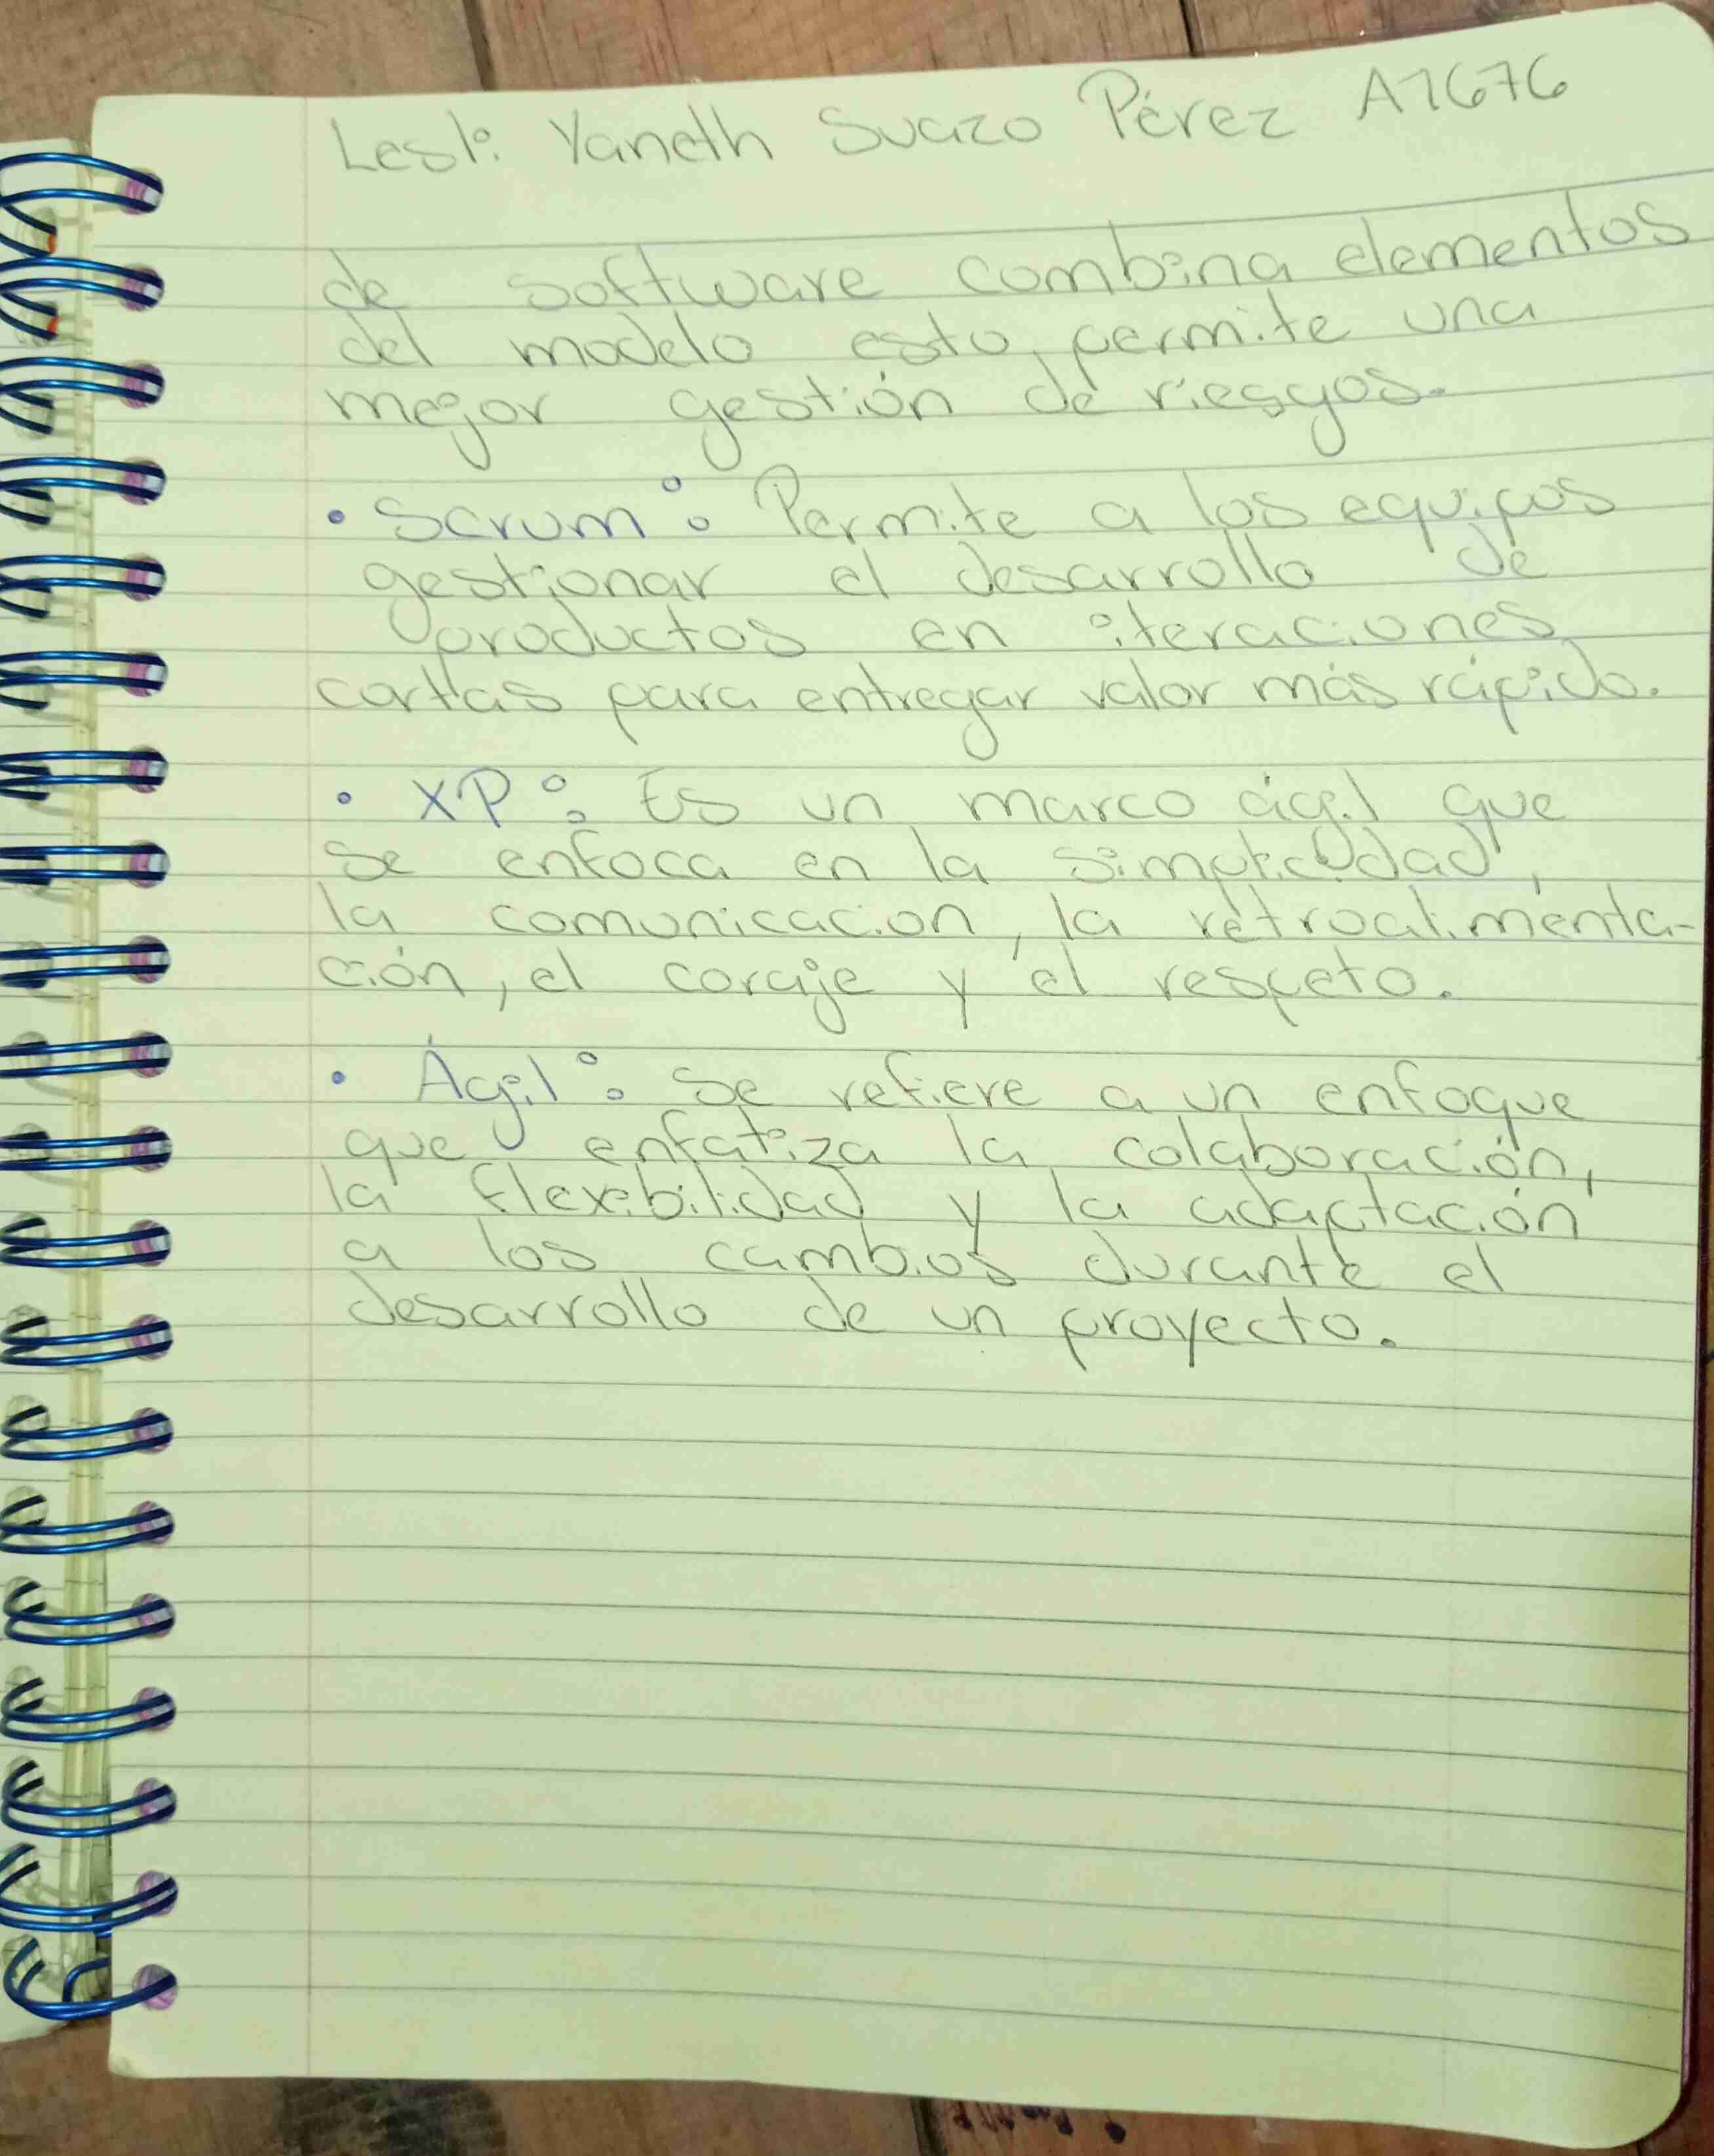 Lesli Yaneth Suazo Pérez A7676
de software combina elementos
del modelo esto permite una
mejor gestión de riesgos.
• Scrum: Permite a los equipos
gestionar el desarrollo de
productos en iteraciones
cortas para entregar valor más rápido.
• XP: Es un marco ágil que
se enfoca en la simplicidad,
la comunicacion, la retroalimenta-
ción, el coraje y el respeto.
• Ágil: Se refiere a un enfoque
que enfatiza la colaboración,
la flexibilidad y la adaptación
a los cambios durante el
desarrollo de un proyecto.